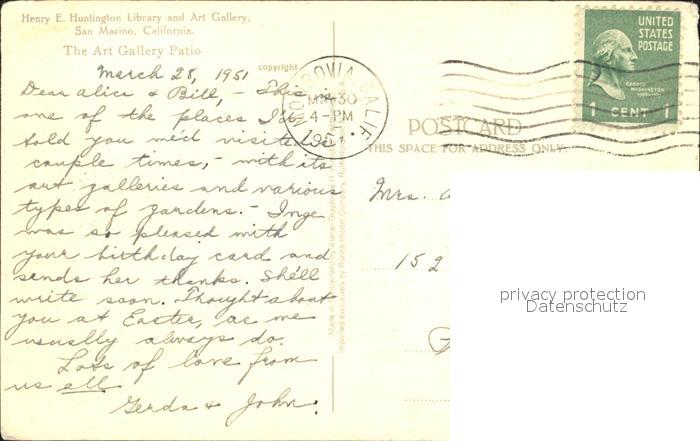 Henry E. Huntington Library and Art Gallery,
San Marino, California.
The Art Gallery Patio
March 28, 1951
Dear Alice & Bill, - This is
one of the places I've
told you we'd visited a
couple times, - with its
art galleries and various
types of gardens. - Inge
was so pleased with
your birthday card and
sends her thanks. She'll
write soon. Thought about
you at Easter, as we
usually always do.
Lots of love from
us all
Gerda & John.
copyright
MONROVIA, CALIF.
MAR 30
4-PM
1951
UNITED
STATES
POSTAGE
GEORGE
WASHINGTON
1 CENT 1
POSTCARD
THIS SPACE FOR ADDRESS ONLY.
Mrs. A
152
privacy protection
Datenschutz